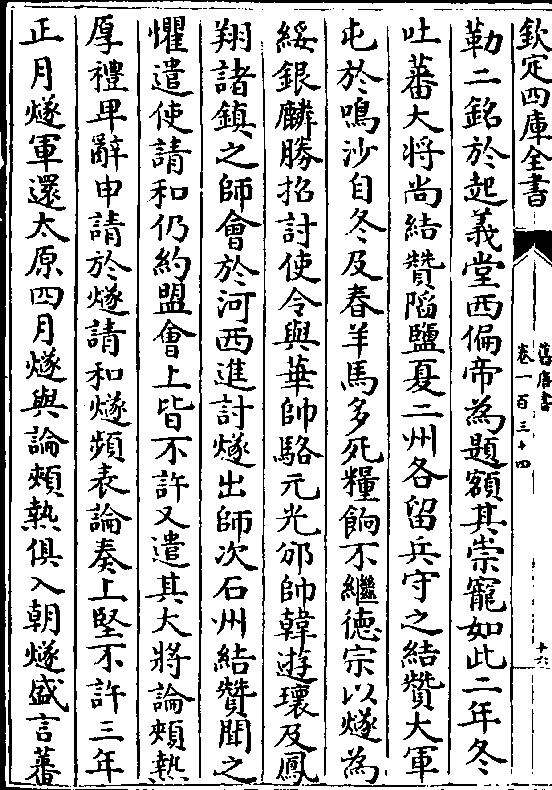 欽定四庫全書
舊唐書
卷一百三十四
十六
勒二銘於起義堂西偏帝為題額其崇寵如此二年冬
吐蕃大將尚結贊陷鹽夏二州各留兵守之結贊大軍
屯於鳴沙自冬及春羊馬多死糧餉不繼德宗以燧為
綏銀麟勝招討使令與華帥駱元光邠帥韓遊瓌及鳳
翔諸鎮之師會於河西進討燧出師次石州結贊聞之
懼遣使請和仍約盟會上皆不許又遣其大將論頰熱
厚禮卑辭申請於燧請和燧頻表論奏上堅不許三年
正月燧軍還太原四月燧與論頰熱俱入朝燧盛言蕃